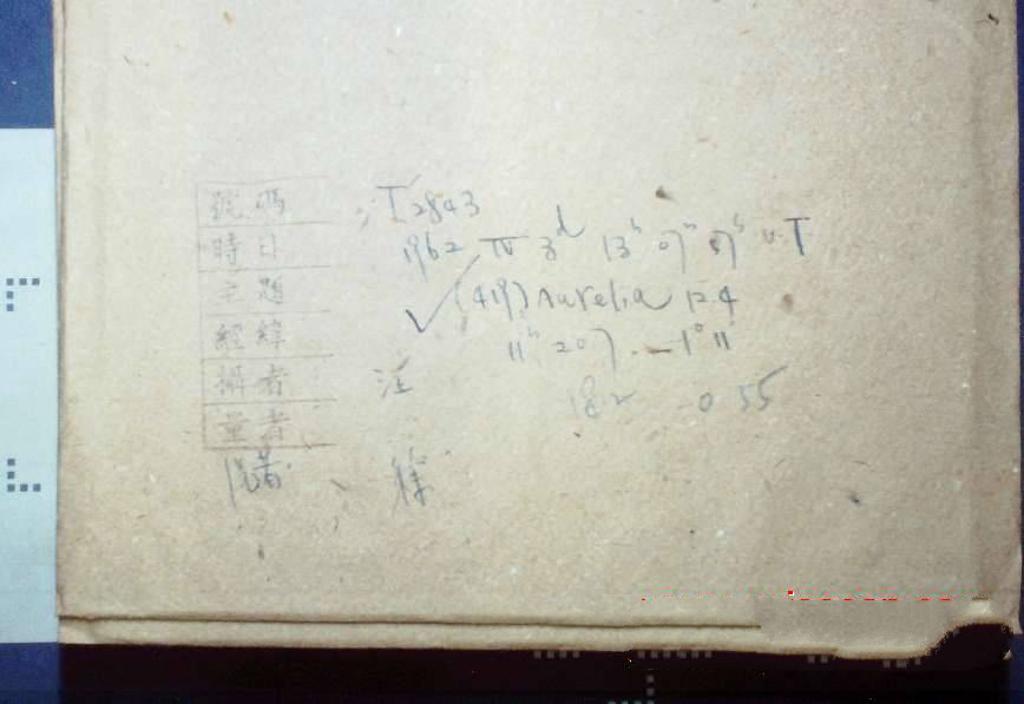 號碼 I 2843
時日 1962 IV 3d 13h 07m 57s U.T
主題 √ (419) Aurelia 12.4
經緯 11h 20.7 -1° 11'
18.2 -0.55
攝者 汪
量者
徐